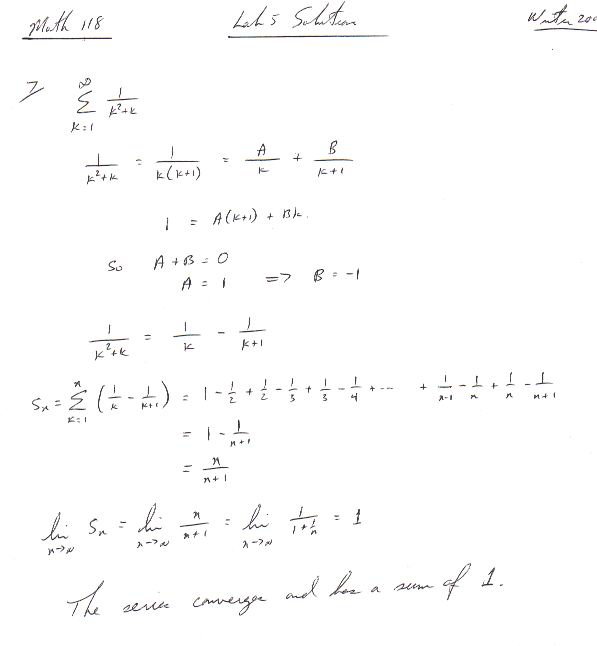 Math 118 Lab 5 Solution Winter 200
7 ∞ ∑ k=1 1/(k²+k)
1/(k²+k) = 1/(k(k+1)) = A/k + B/(k+1)
1 = A(k+1) + Bk.
So A + B = 0
A = 1 => B = -1
1/(k²+k) = 1/k - 1/(k+1)
Sₙ = n ∑ k=1 (1/k - 1/(k+1)) = 1 - 1/2 + 1/2 - 1/3 + 1/3 - 1/4 + ... + 1/(n-1) - 1/n + 1/n - 1/(n+1)
= 1 - 1/(n+1)
= n/(n+1)
lim n→∞ Sₙ = lim n→∞ n/(n+1) = lim n→∞ 1/(1+1/n) = 1
The series converges and has a sum of 1.